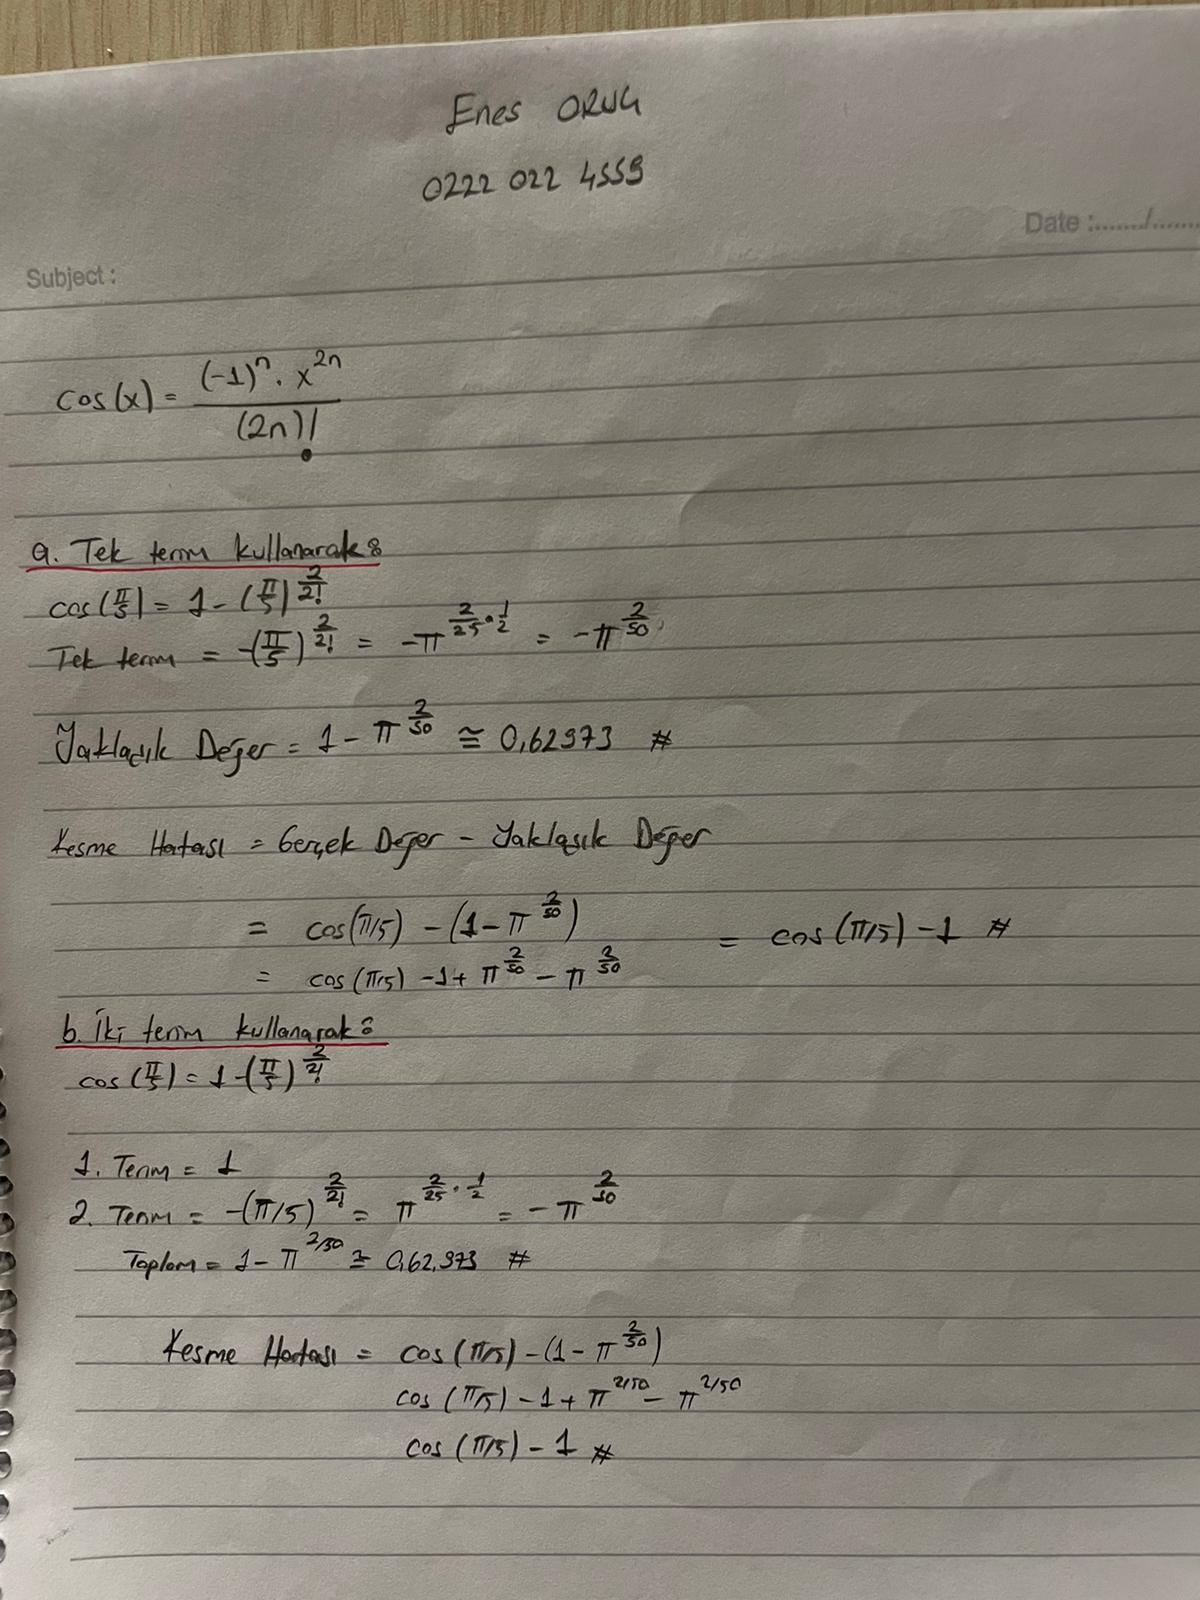 Enes ORUÇ
0222 022 4559
Date :......./.......
Subject :
cos(x) = (-1)ⁿ . x²ⁿ / (2n)!
a. Tek terim kullanarak:
cos(π/5) = 1 - (π/5)^2/2!
Tek terim = -(π/5)^2/2! = -π^2/25 · 1/2 = -π^2/50
Yaklaşık Değer = 1 - π^2/50 ≅ 0,62973 #
Kesme Hatası = Gerçek Değer - Yaklaşık Değer
= cos(π/5) - (1 - π^2/50) = cos(π/5) - 1 #
= cos(π/5) - 1 + π^2/50 - π^2/50
b. İki terim kullanarak:
cos(π/5) = 1 - (π/5)^2/2!
1. Terim = 1
2. Terim = -(π/5)^2/2! = π^2/25 · 1/2 = -π^2/50
Toplam = 1 - π^2/50 ≅ 0,62,973 #
Kesme Hatası = cos(π/5) - (1 - π^2/50)
cos(π/5) - 1 + π^2/50 - π^2/50
cos(π/5) - 1 #